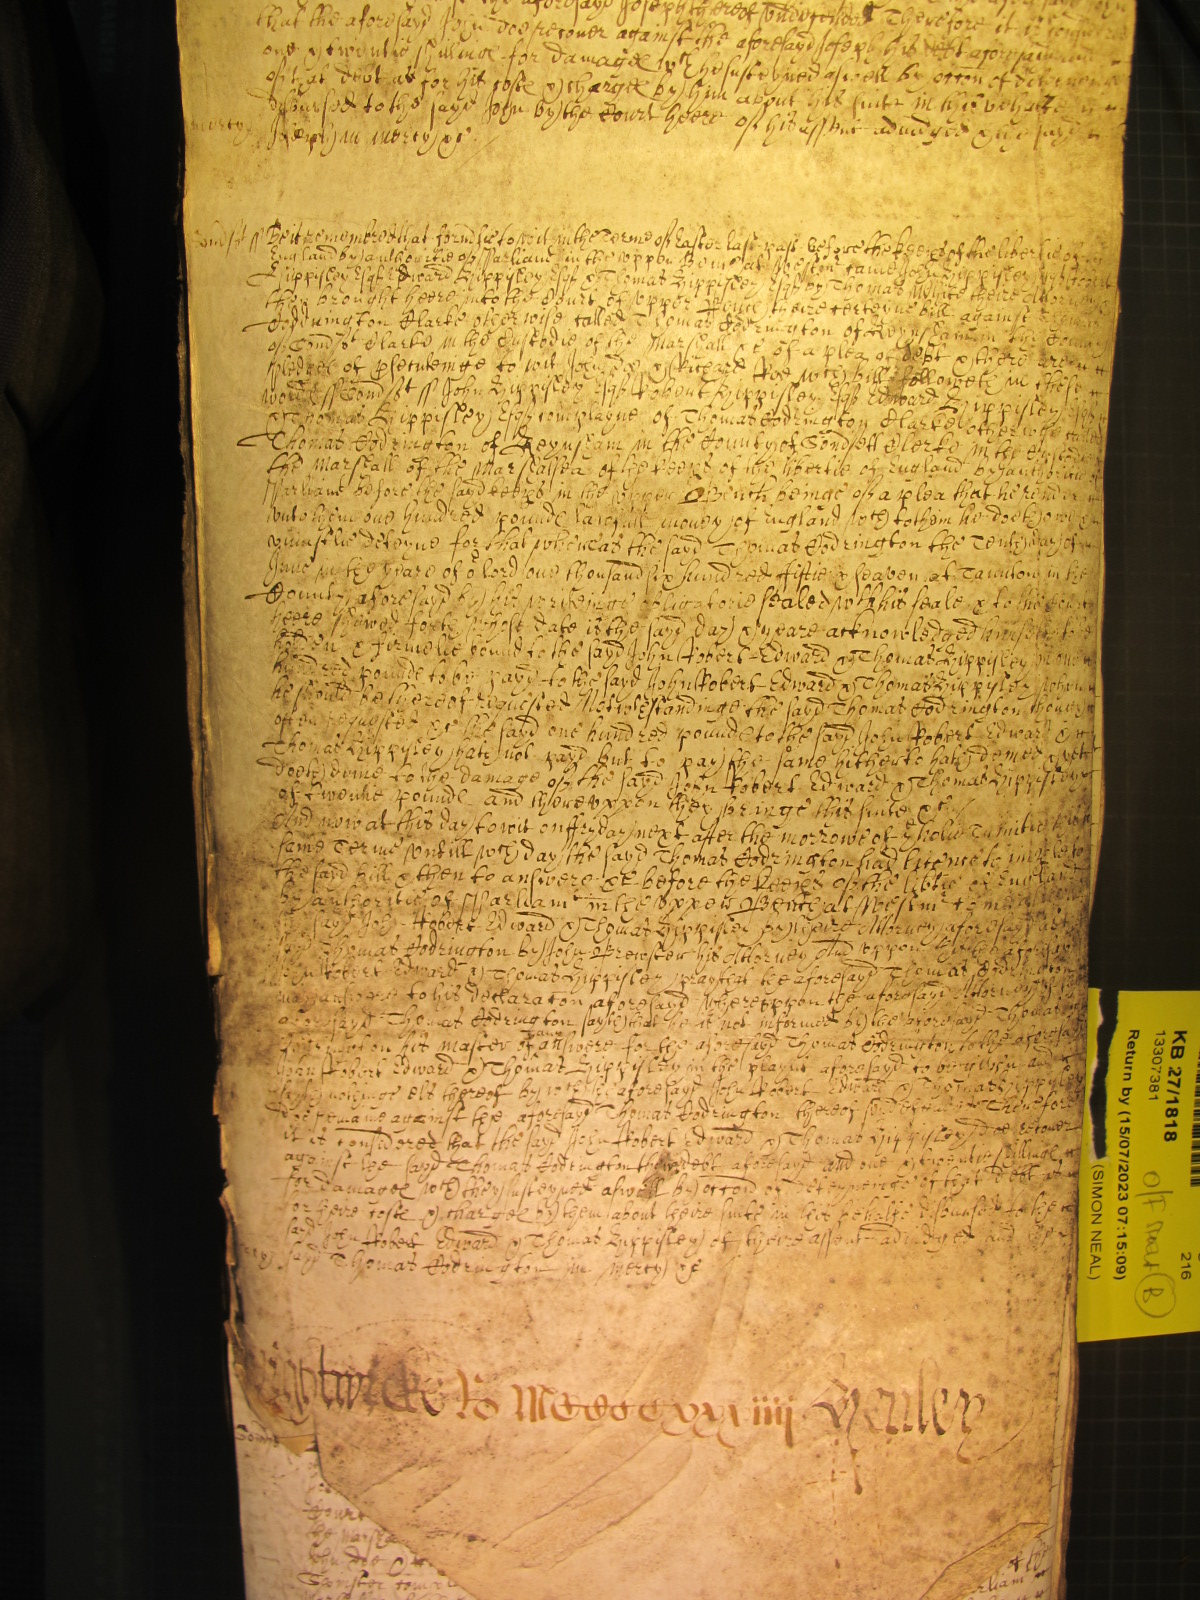 that the aforesayd John doe recover against the aforesayd Joseph his debt aforesayd
one & twentie shillinge for damage wch he susteyned aswell by occon of deteyninge
of that debt as for his coste & charges by him about his suite in this behalfe
disbursed to the sayd John by the Court heere of his assent adiudged & the sayd
Joseph in mercy &c
mercy
Somsett ss Be it remembred that formerlie to wit in the Terme of Easter last past before the keeps of the libertie of
England by authoritie of Parliamt in the upper Bench at Westmr came John Hippisley Esqr Robert
Hippisley Esqr Edward Hippisley Esqr & Thomas Hippisley Esqr by Thomas White theire Attorney
they brought heere into the Court of upper Bench theire certeyne bill against Thomas
Codrington Clarke otherwise called Thomas Codrington of Keynsham in the County
of Somst Clarke in the Custodie of the Marshall &c of a plea of debt & there are
pledges of prosecutinge to wit John Doe & Richard Roe wch bill followeth in these
words ss Somsst ss John Hippisley Esqr Robert Hippisley Esqr Edward Hippisley Esqr
& Thomas Hippisley Esqr complayne of Thomas Codrington Clarke otherwise called
Thomas Codrington of Keynsham in the County of Somsett Clerke in the Custodie
the Marshall of the Marshalsea of the keeps of the libertie of England by authoritie of
Parliamt before the sayd keeps in the upper Bench beinge of a plea that he render
unto them one hundred pounds lawfull money of England wch to them he doth owe
uniustlie deteyne for that whereas the sayd Thomas Codrington the Tenth day of
June in the yeare of or lord one thousand six hundred fiftie & seaven at Taunton in the
County aforesayd by his writinge obligatorie sealed with his seale & to the Court
heere shewed forth whose date is the sayd day & yeare acknowledged himselfe to be
holden & firmelie bound to the sayd John Robert Edward & Thomas Hippisley in one
hundred pounds to be payd to the sayd John Robert Edward & Thomas Hippisley when
he should be thereof requested Notwithstandinge the sayd Thomas Codrington though
often requested &c the sayd one hundred pounds to the sayd John Robert Edward &
Thomas Hippisley hath not payd but to pay the same hitherto hath denied & yet
doeth denie to the damage of the sayd John Robert Edward & Thomas Hippisley
of twentie pounds and thereuppon they bringe this suite &c
And now at this day to wit on Fryday next after the morrowe of Holie Trinitie
same Terme untill wch day the sayd Thomas Codrington had licence to imparle to
the sayd bill & then to answere &c before the keeps of the libtie of England
by authoritie of Parliamt in the upper Bench at Westmr
sayd John Robert Edward & Thomas Hippisley by theire Attorney aforesayd as
Thomas Codrington by John Brewster his Attorney And uppon
John Robert Edward & Thomas Hippisley pray that the aforesayd Thomas Codrington
may answere to his declaracon aforesayd Whereuppon the aforesayd Attorney of
aforesayd Thomas Codrington sayth that he is not informed by the aforesayd Thomas
Codrington his master of any answere for the aforesayd Thomas Codrington to the aforesayd
John Robert Edward & Thomas Hippisley in the playnt aforesayd to be given and
sayth nothinge els thereof by wch the aforesayd John Robert Edward & Thomas Hippisley
doe remayne against the aforesayd Thomas Codrington thereof undefended Therefore
it is considered that the sayd John Robert Edward & Thomas Hippisley doe recover
against the sayd Thomas Codrington their debt aforesayd and one & twentie shillinge
for damages wch they susteyned aswell by occon of deteyninge of that debt as
for theire coste & charges by them about theire suite in this behalfe disbursed to the
sayd John Robert Edward & Thomas Hippisley of theire assent adiudged and the
sayd Thomas Codrington in mercy &c
Ro Mccccxxxiiii Henley
Court
the Marsh
John doe &
KB 27/1818
13307381
216
Return by (15/07/2023 07:15:09)
(SIMON NEAL)